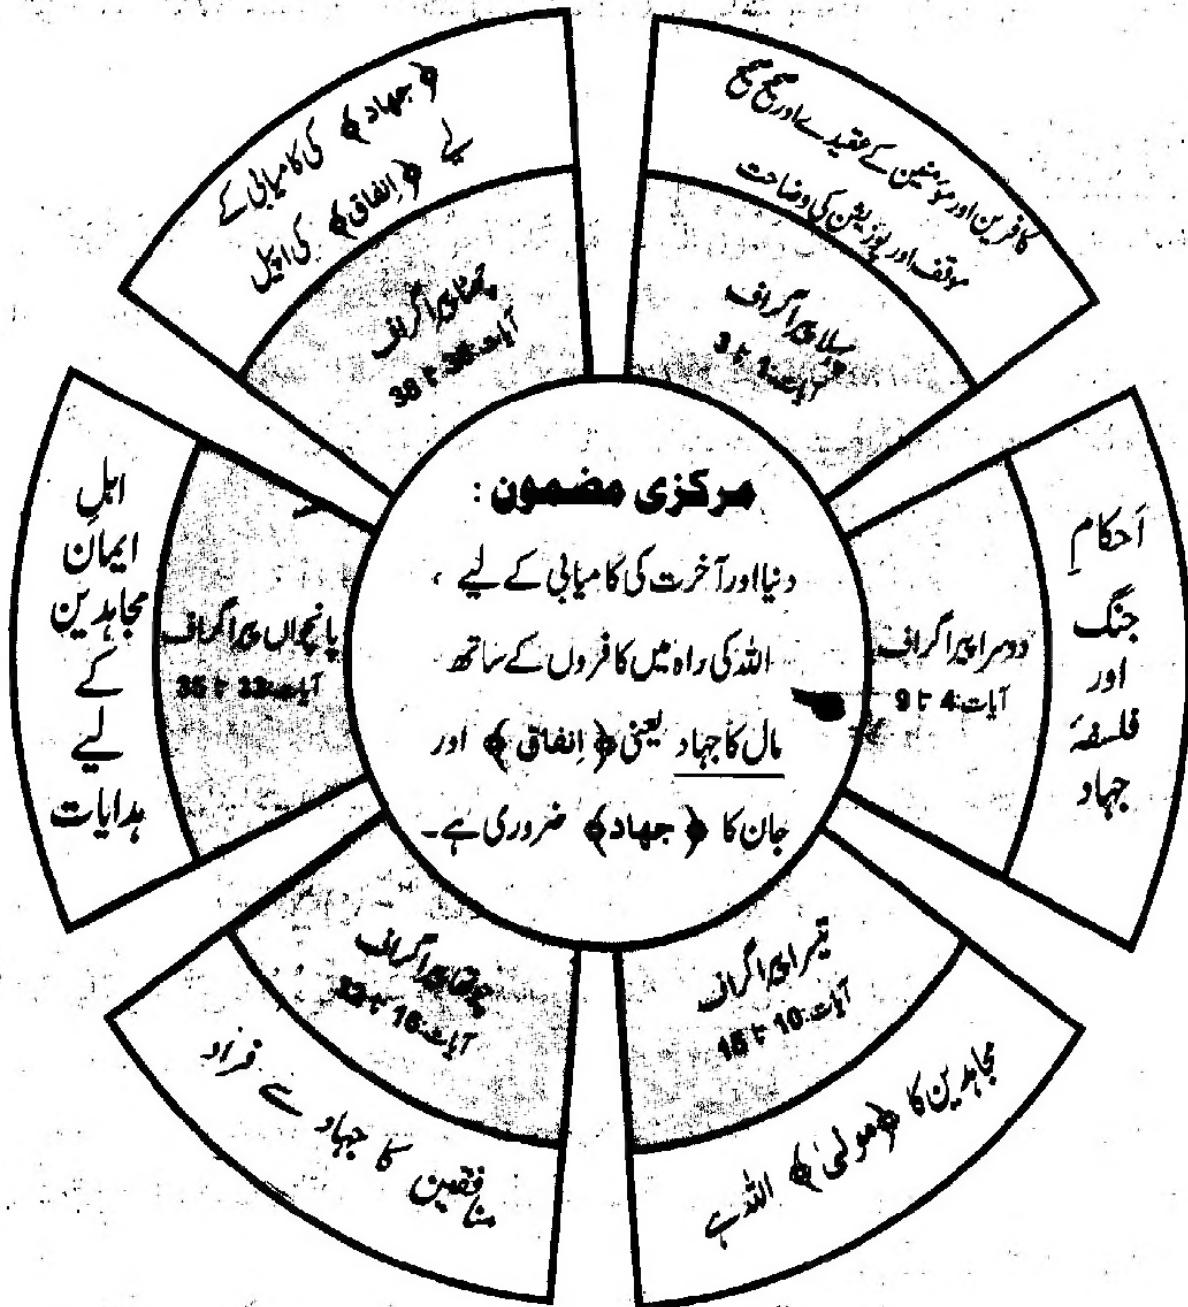 مرکزی مضمون :
دنیا اور آخرت کی کامیابی کے لیے ،
اللہ کی راہ میں کافروں کے ساتھ
مال کا جہاد یعنی ﴿ اِنفاق ﴾ اور
جان کا ﴿ جهاد﴾ ضروری ہے۔
کافرین اور مؤمنین کے عقیدے اور صحیح صحیح
موقف اور پوزیشن کی وضاحت
پہلا پیراگراف
آیات:1 تا 3
اَحکامِ
جنگ
اور
فلسفۂ
جہاد
دوسرا پیراگراف
آیات:4 تا 9
تیسرا پیراگراف
آیات:10 تا 15
مجاہدین کا ﴿مولیٰ﴾ اللہ ہے
چوتھا پیراگراف
آیات:16 تا 32
منافقین کا جہاد سے فرار
اہلِ
ایمان
مجاہدین
کے
لیے
ہدایات
پانچواں پیراگراف
آیات:33 تا 35
﴿جهاد﴾ کی کامیابی کے
لیے ﴿اِنفاق﴾ کی اپیل
چھٹا پیراگراف
آیات:36 تا 38